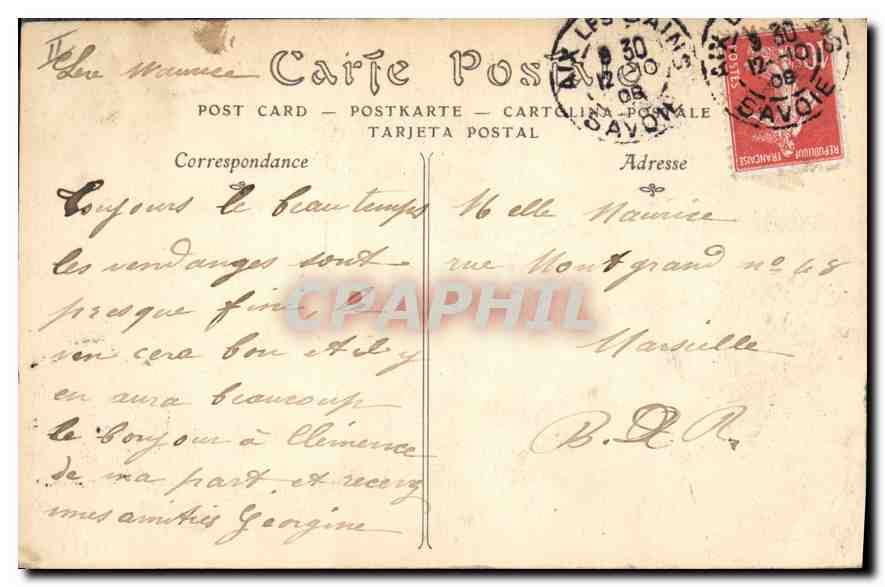 II
Lere Maurice
Carte Postale
POST CARD — POSTKARTE — CARTOLINA POSTALE
TARJETA POSTAL
AIX LES BAINS
9 30
12 -10
08
SAVOIE
9 30
12 -10
08
SAVOIE
10
POSTES
REPUBLIQUE FRANÇAISE
Correspondance
Toujours le beau temps
les vendanges sont
presque fini, le
vin cera bon et il y
en aura beaucoup
le bonjour à Clémence
de ma part et recevez
mes amitiés Georgine
Adresse
Melle Maurice
rue Montgrand no 48
Marseille
B. D R.
CPAPHIL